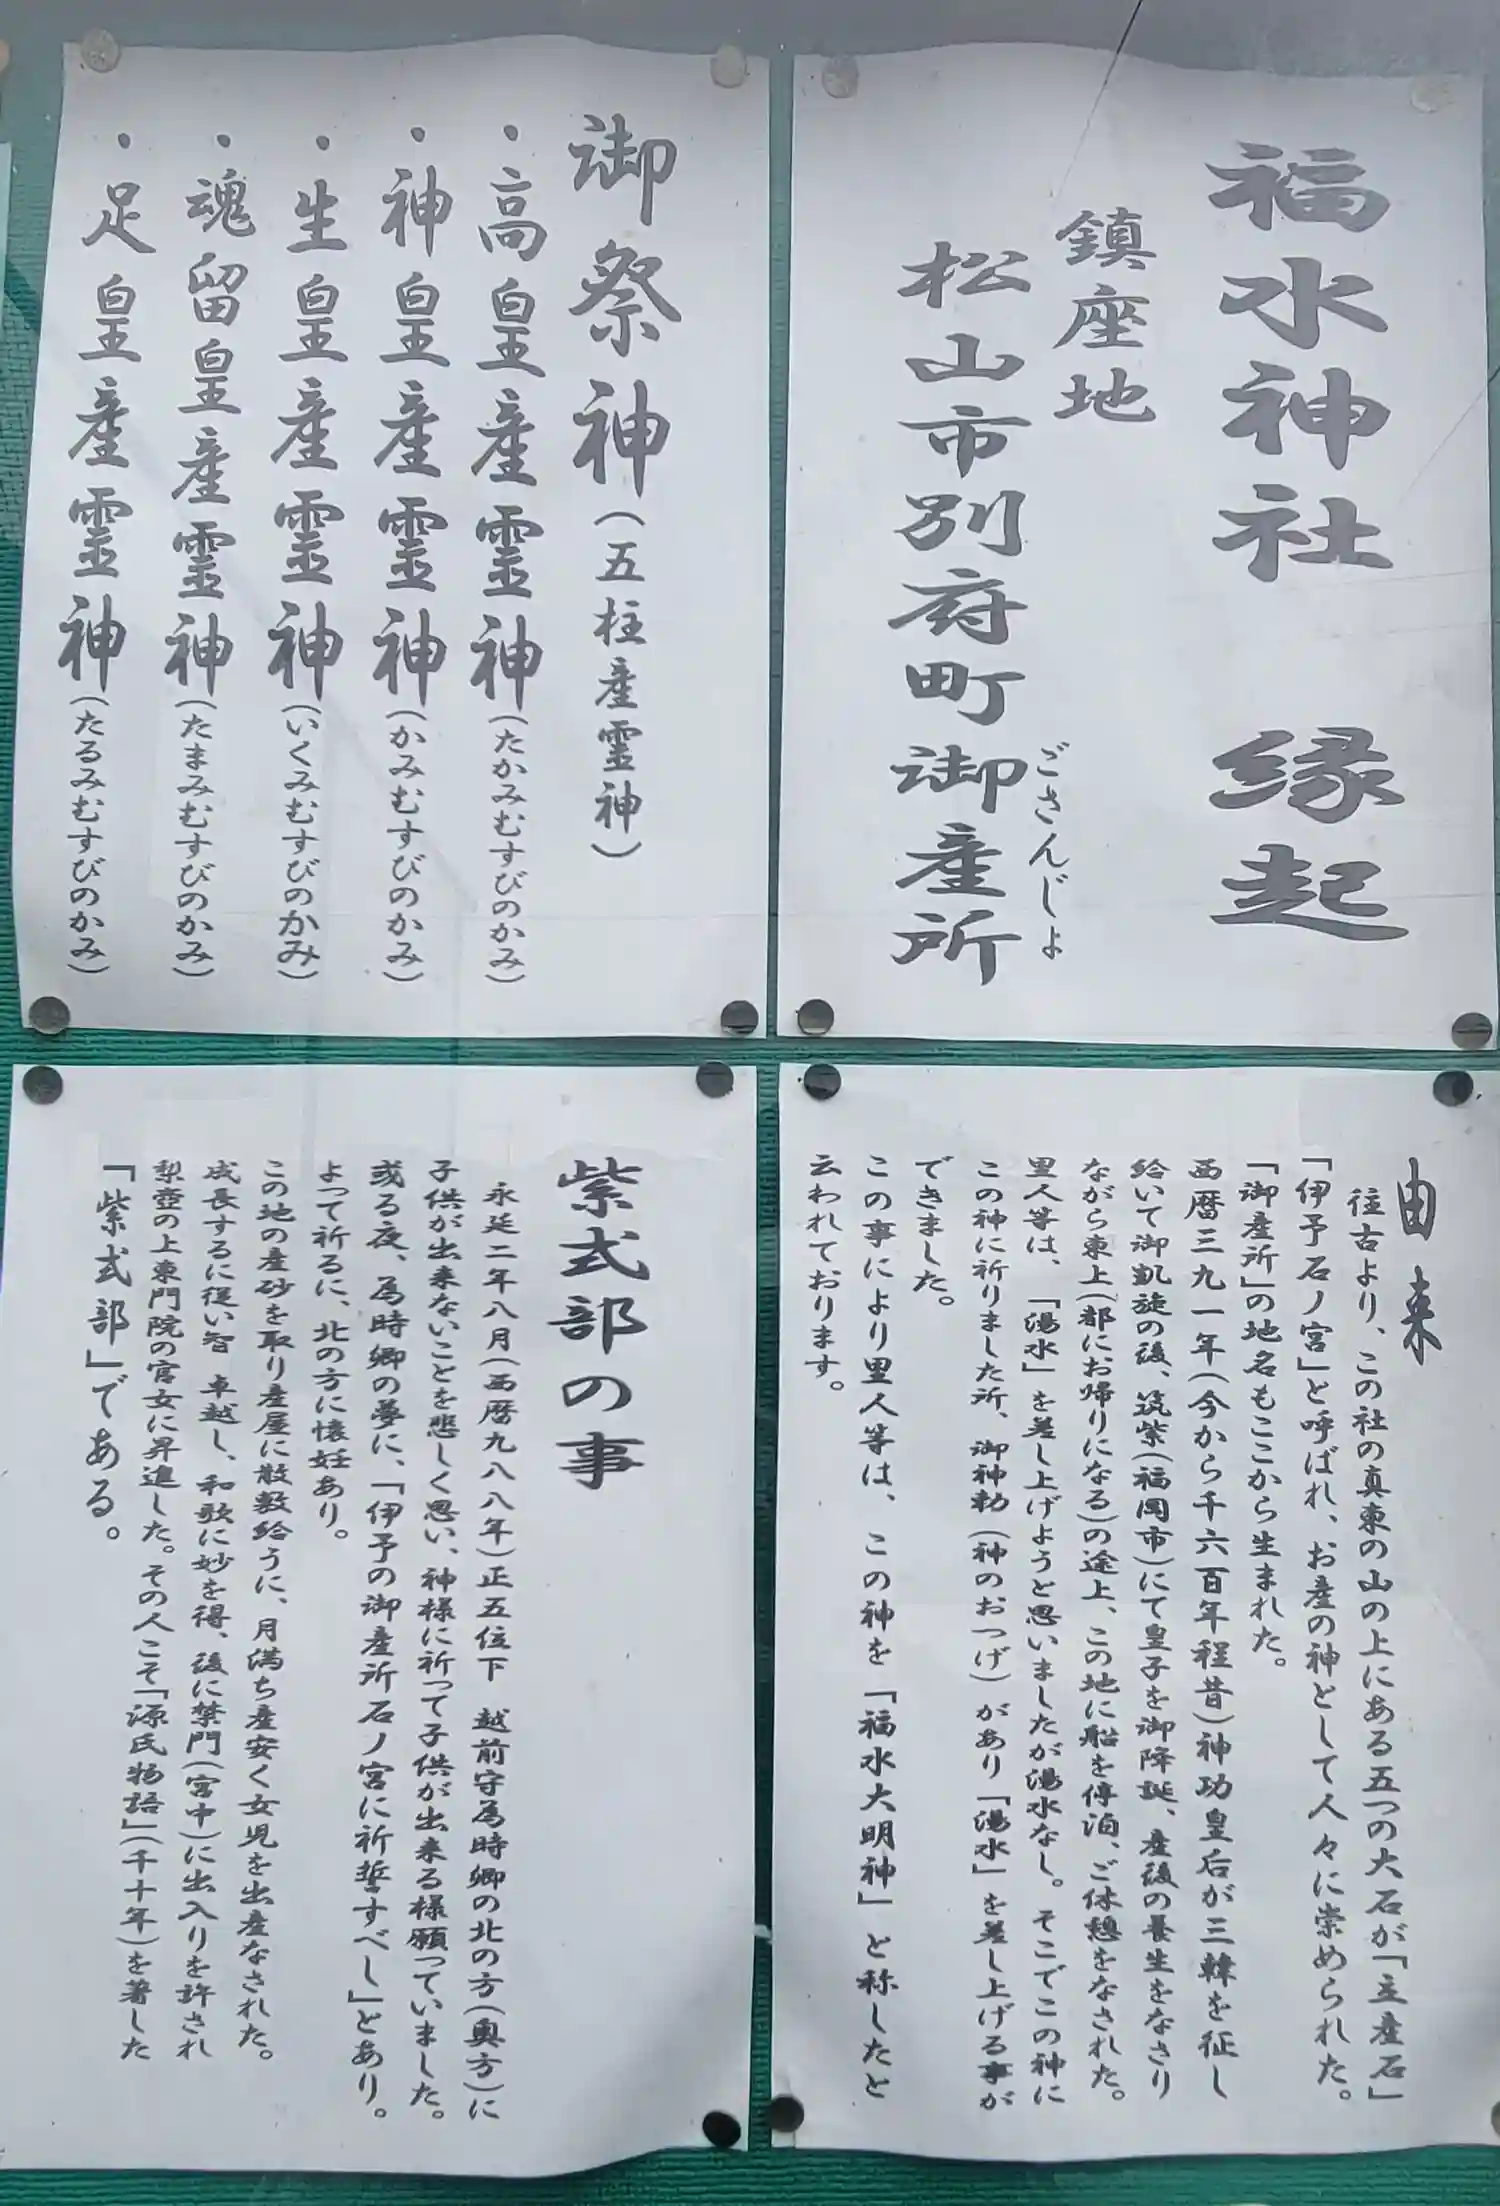 福水神社 縁起
鎮座地
松山市別府町御産所
ごさんじょ
御祭神(五柱産霊神)
・高皇産霊神(たかみむすびのかみ)
・神皇産霊神(かみむすびのかみ)
・生皇産霊神(いくみむすびのかみ)
・魂留皇産霊神(たまみむすびのかみ)
・足皇産霊神(たるみむすびのかみ)
由来
往古より、この社の真東の山の上にある五つの大石が「立産石」
「伊予石ノ宮」と呼ばれ、お産の神として人々に崇められた。
「御産所」の地名もここから生まれた。
西暦三九一年(今から千六百年程昔)神功皇后が三韓を征し
給いて御凱旋の後、筑紫(福岡市)にて皇子を御降誕、産後の養生をなさり
ながら東上(都にお帰りになる)の途上、この地に船を停泊、ご休憩をなされた。
里人等は、「湯水」を差し上げようと思いましたが湯水なし。そこでこの神に
この神に祈りました所、御神勅(神のおつげ)があり「湯水」を差し上げる事が
できました。
この事により里人等は、この神を「福水大明神」と称したと
云われております。
紫式部の事
永延二年八月(西暦九八八年)正五位下 越前守為時卿の北の方(奥方)に
子供が出来ないことを悲しく思い、神様に祈って子供が出来る様願っていました。
或る夜、為時卿の夢に、「伊予の御産所石ノ宮に祈誓すべし」とあり。
よって祈るに、北の方に懐妊あり。
この地の産砂を取り産屋に散敷給うに、月満ち産安く女児を出産なされた。
成長するに従い智 卓越し、和歌に妙を得、後に禁門(宮中)に出入りを許され
梨壺の上東門院の官女に昇進した。その人こそ「源氏物語」(千十年)を著した
「紫式部」である。